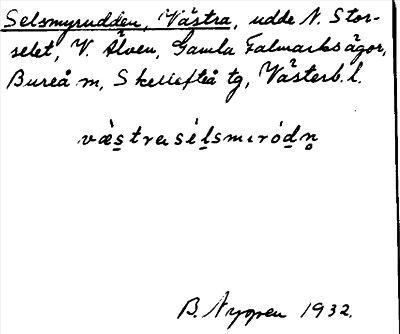 Selsmyrudden, Västra, udde N. Stor-
selet, V. Älven, Gamla Falmarksägor,
Bureå m, Skellefteå tg, Västerb. l.
væ̀s̱trasélsmıród̠n̥
B. Nygren 1932.